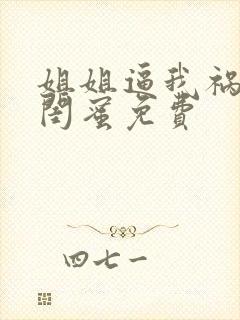 姐姐逼我祸
闺蜜免费
四七一